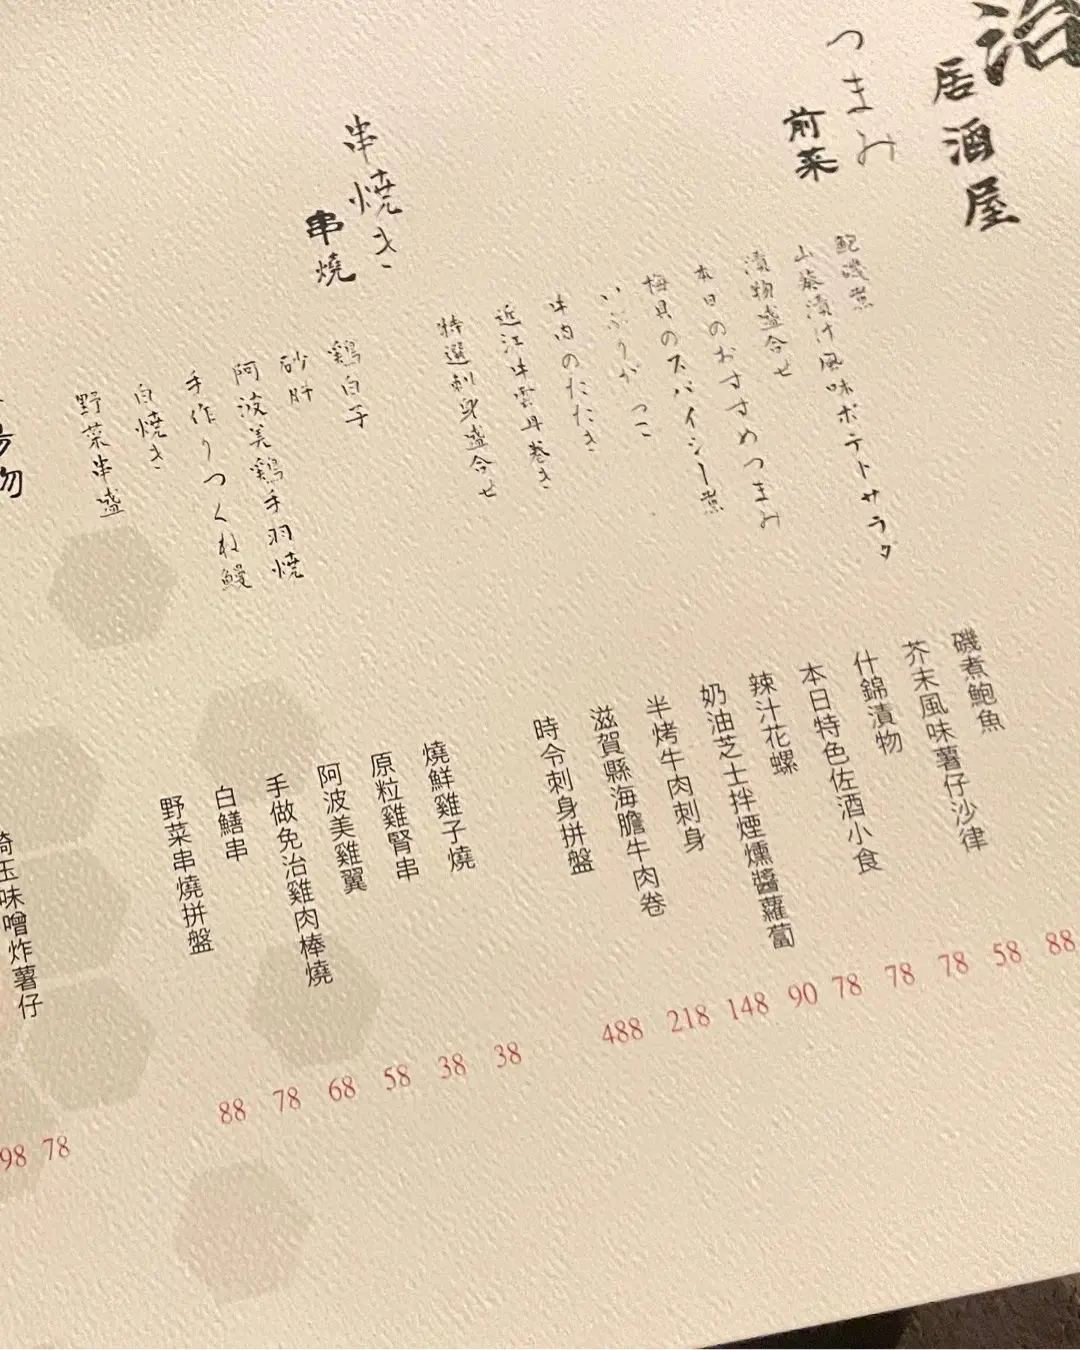 治
居酒屋
つまみ
前菜
鮑磯煮
山葵漬け風味ポテトサラダ
漬物盛合せ
本日のおすすめつまみ
梅貝のスパイシー煮
いぶりがっこ
牛肉のたたき
近江牛雲丹巻き
特選刺身盛合せ
磯煮鮑魚
芥末風味薯仔沙律
什錦漬物
本日特色佐酒小食
辣汁花螺
奶油芝士拌煙燻醬蘿蔔
半烤牛肉刺身
滋賀縣海膽牛肉卷
時令刺身拼盤
88
58
78
78
78
90
148
218
488
串焼き
串燒
鶏白子
砂肝
阿波美鶏手羽焼
手作りつくね鰻
白焼き
野菜串盛
燒鮮雞子燒
原粒雞腎串
阿波美雞翼
手做免治雞肉棒燒
白鱔串
野菜串燒拼盤
38
38
58
68
78
88
揚物
埼玉味噌炸薯仔
78
98